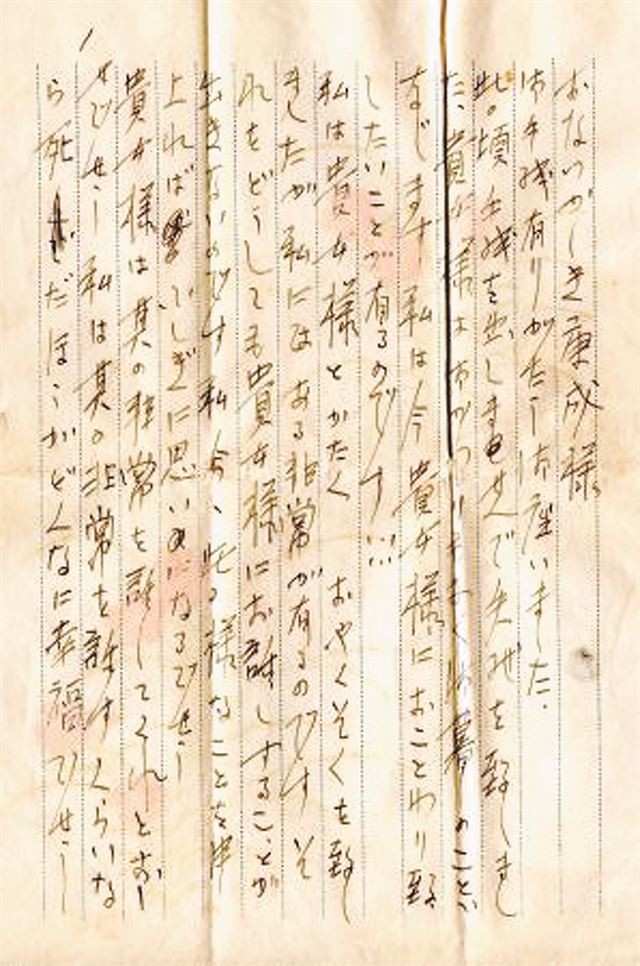 おなつかしき康成様
お手紙有りがたう御座いました、
此の頃手紙を出しませんで失礼を致しまし
た、貴女様はおかわりもなくお暮のことゝ
ぞんじます 私は今貴女様におことわり致
したいことが有るのです…
私は貴女様とかたく おやくそくを致し
ましたが私にはある非常が有るのですそ
れをどうしても貴女様にお話しすることが
出きないのです私今、此る様なことを申
上れば ふしぎに思いになるでせう
貴女様は其の非常を話してくれとおー
せでせう 私は其の非常を話すくらいな
ら死んだほうがどんなに幸福でせう